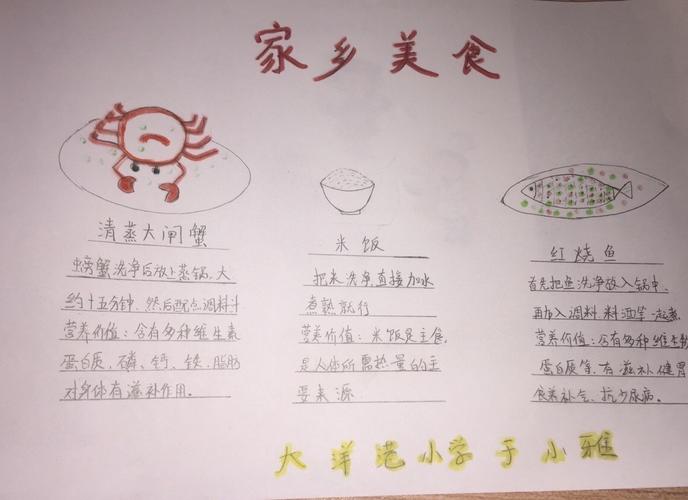 家乡美食
清蒸大闸蟹
螃蟹洗净后放上蒸锅，大
约十五分钟，然后配点调料汁
营养价值：含有多种维生素
蛋白质、磷、钙、铁、脂肪
对身体有滋补作用。
米饭
把米洗净直接加水
煮熟就行
营养价值：米饭是主食，
是人体所需热量的主
要来源
红烧鱼
首先把鱼洗净放入锅中，
再加入调料 料酒等一起煮
营养价值：含有多种维生素
蛋白质等，有滋补健胃
食养补气、抗 尿病。
大洋港小学于小雅